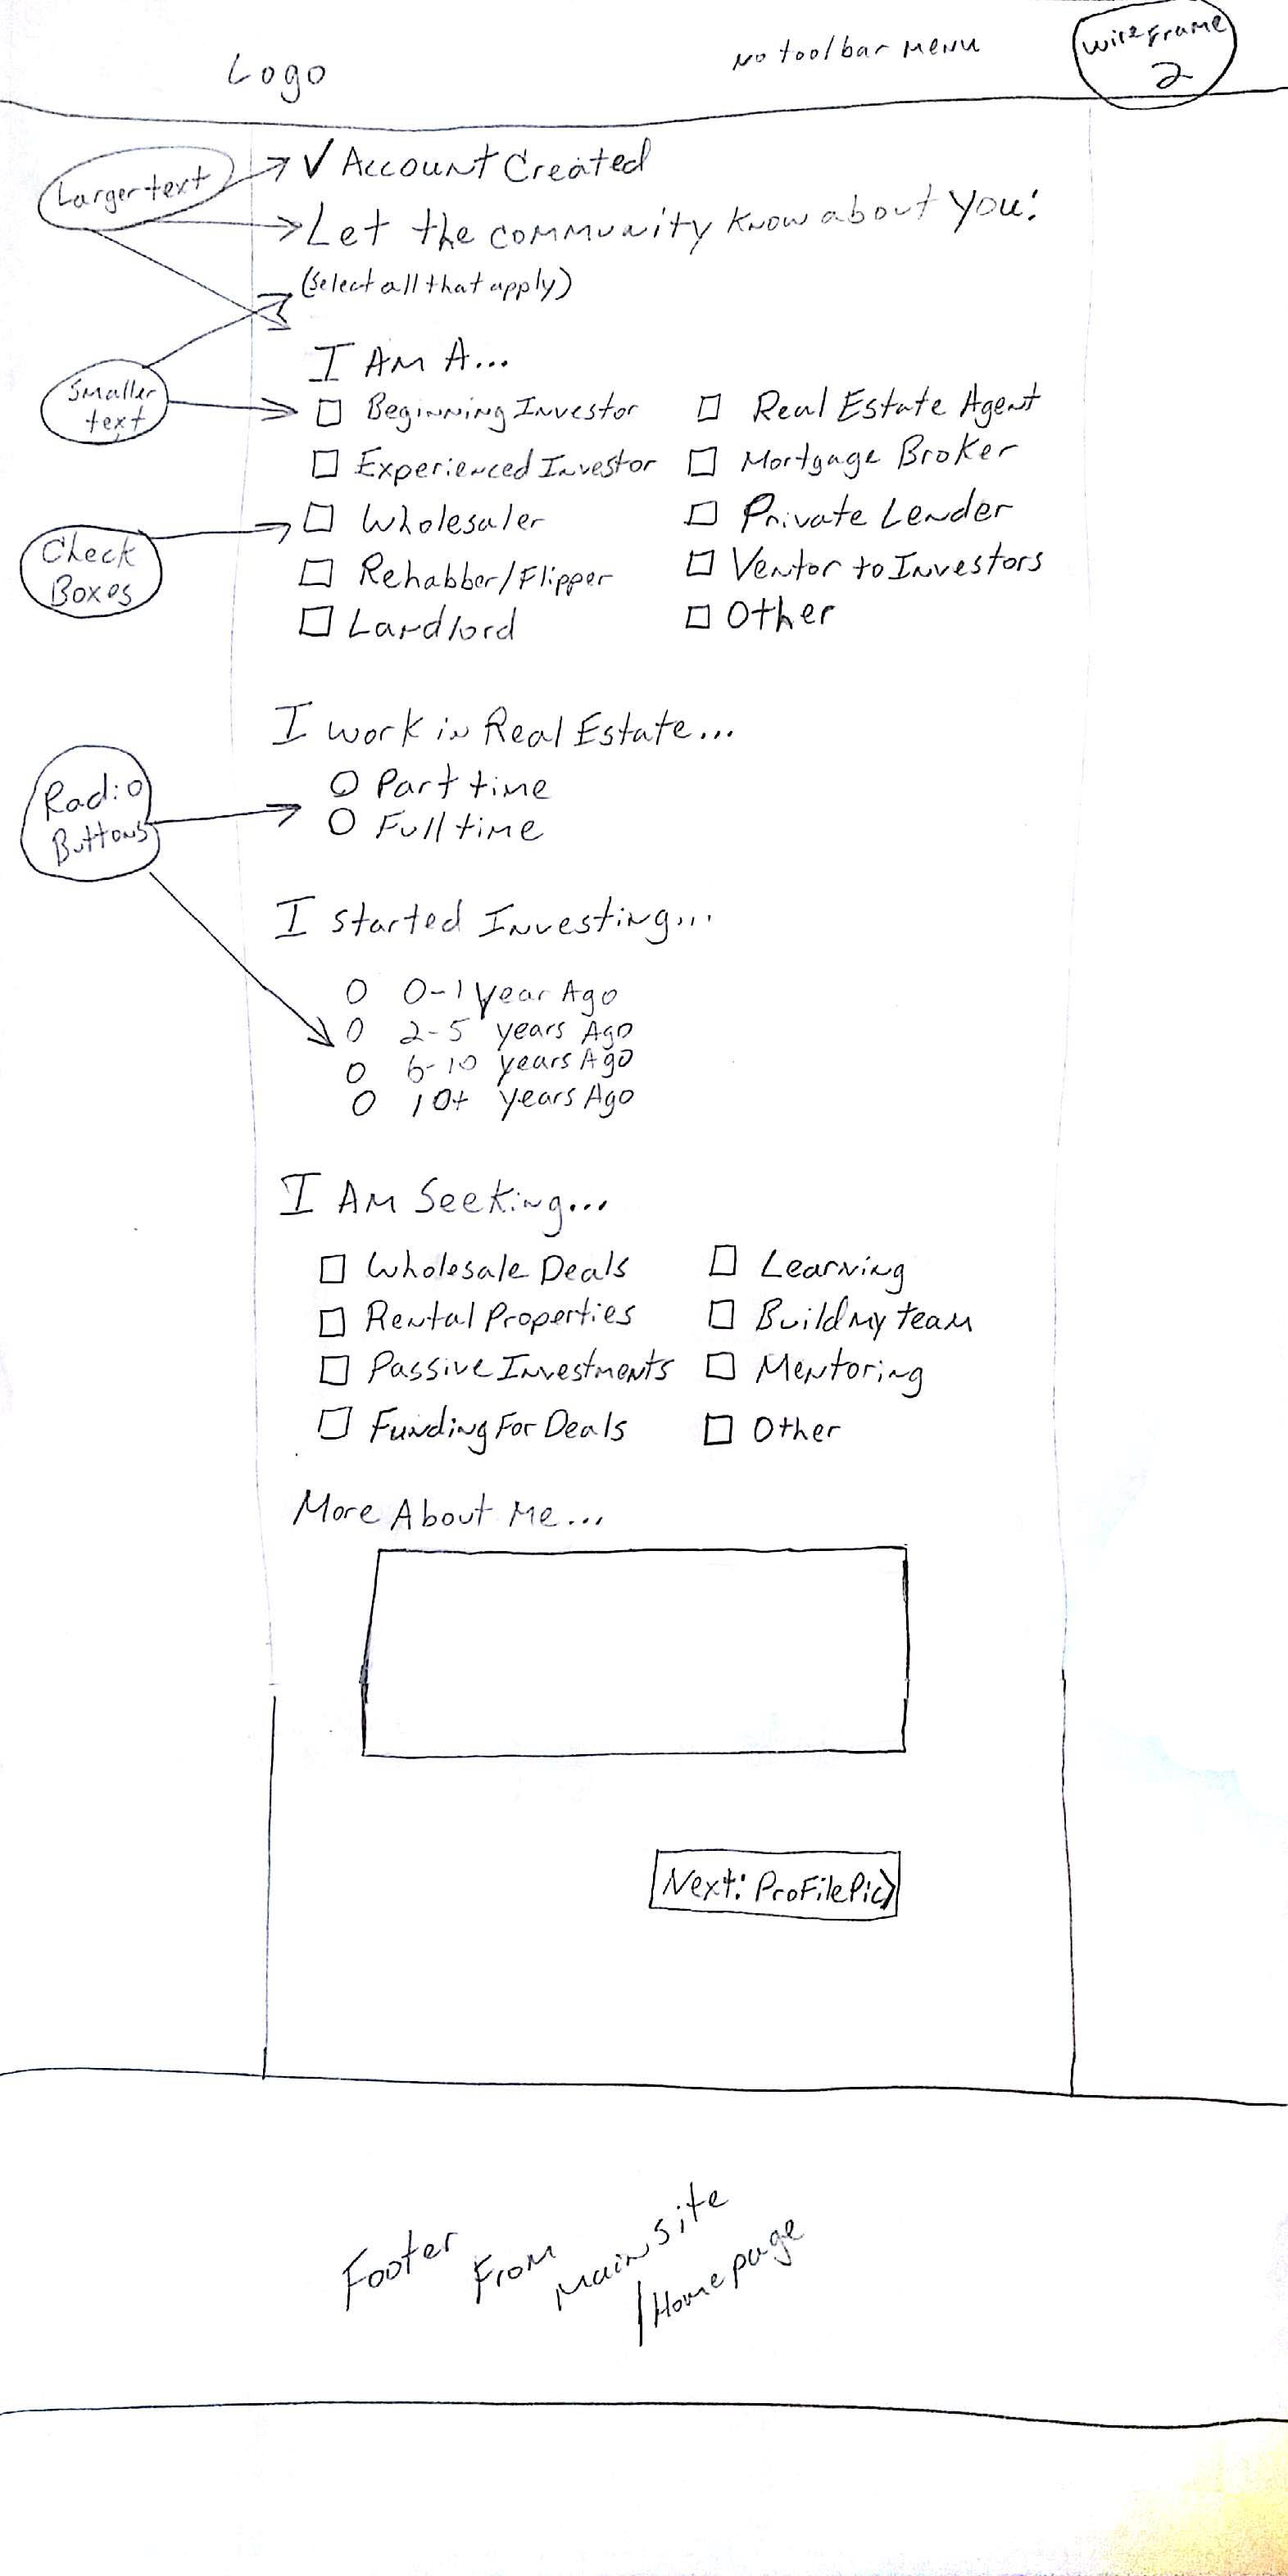 Logo
No toolbar Menu
Wireframe
2
Larger text
✓ Account Created
Let the community know about you:
(select all that apply)
I Am A...
Smaller
text
☐ Beginning Investor ☐ Real Estate Agent
☐ Experienced Investor ☐ Mortgage Broker
☐ Wholesaler ☐ Private Lender
Check
Boxes
☐ Rehabber/Flipper ☐ Ventor to Investors
☐ Landlord ☐ Other
I work in Real Estate...
Radio
Buttons
○ Part time
○ Full time
I started Investing...
○ 0-1 Year Ago
○ 2-5 years Ago
○ 6-10 years Ago
○ 10+ years Ago
I Am Seeking...
☐ Wholesale Deals ☐ Learning
☐ Rental Properties ☐ Build My Team
☐ Passive Investments ☐ Mentoring
☐ Funding For Deals ☐ Other
More About Me...
Next: Profile Pic>
Footer From Main Site
/Homepage